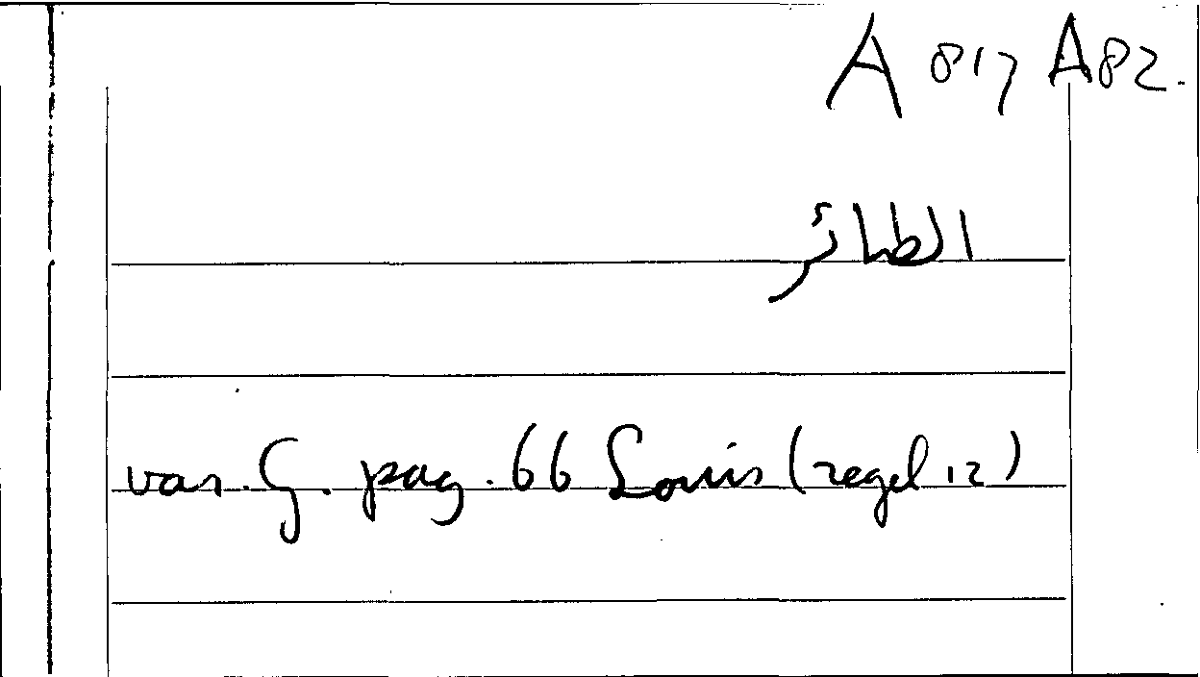 A 817 A82.
الطائر
var. G. pag. 66 Louis (regel 12)